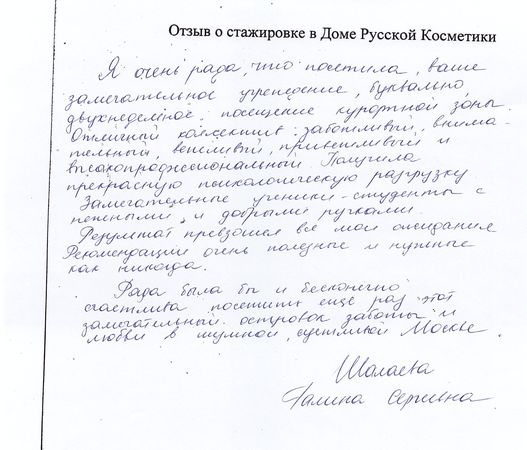 Отзыв о стажировке в Доме Русской Косметики
Я очень рада, что посетила, ваше
замечательное учреждение, буквально,
двухнедельное посещение курортной зоны.
Отличный коллектив заботливый, внима-
тельный, вежливый, приветливый и
высокопрофессиональный. Получила
прекрасную психологическую разгрузку
Замечательные ученики-студенты с
нежными, и добрыми ручками.
Результат превзошел все мои ожидания
Рекомендации очень полезные и нужные
как никогда.
Рада была бы и бесконечно
счастлива посетить еще раз этот
замечательный островок заботы и
любви в шумной, суетливой Москве
Шалаева
Галина Сергеевна